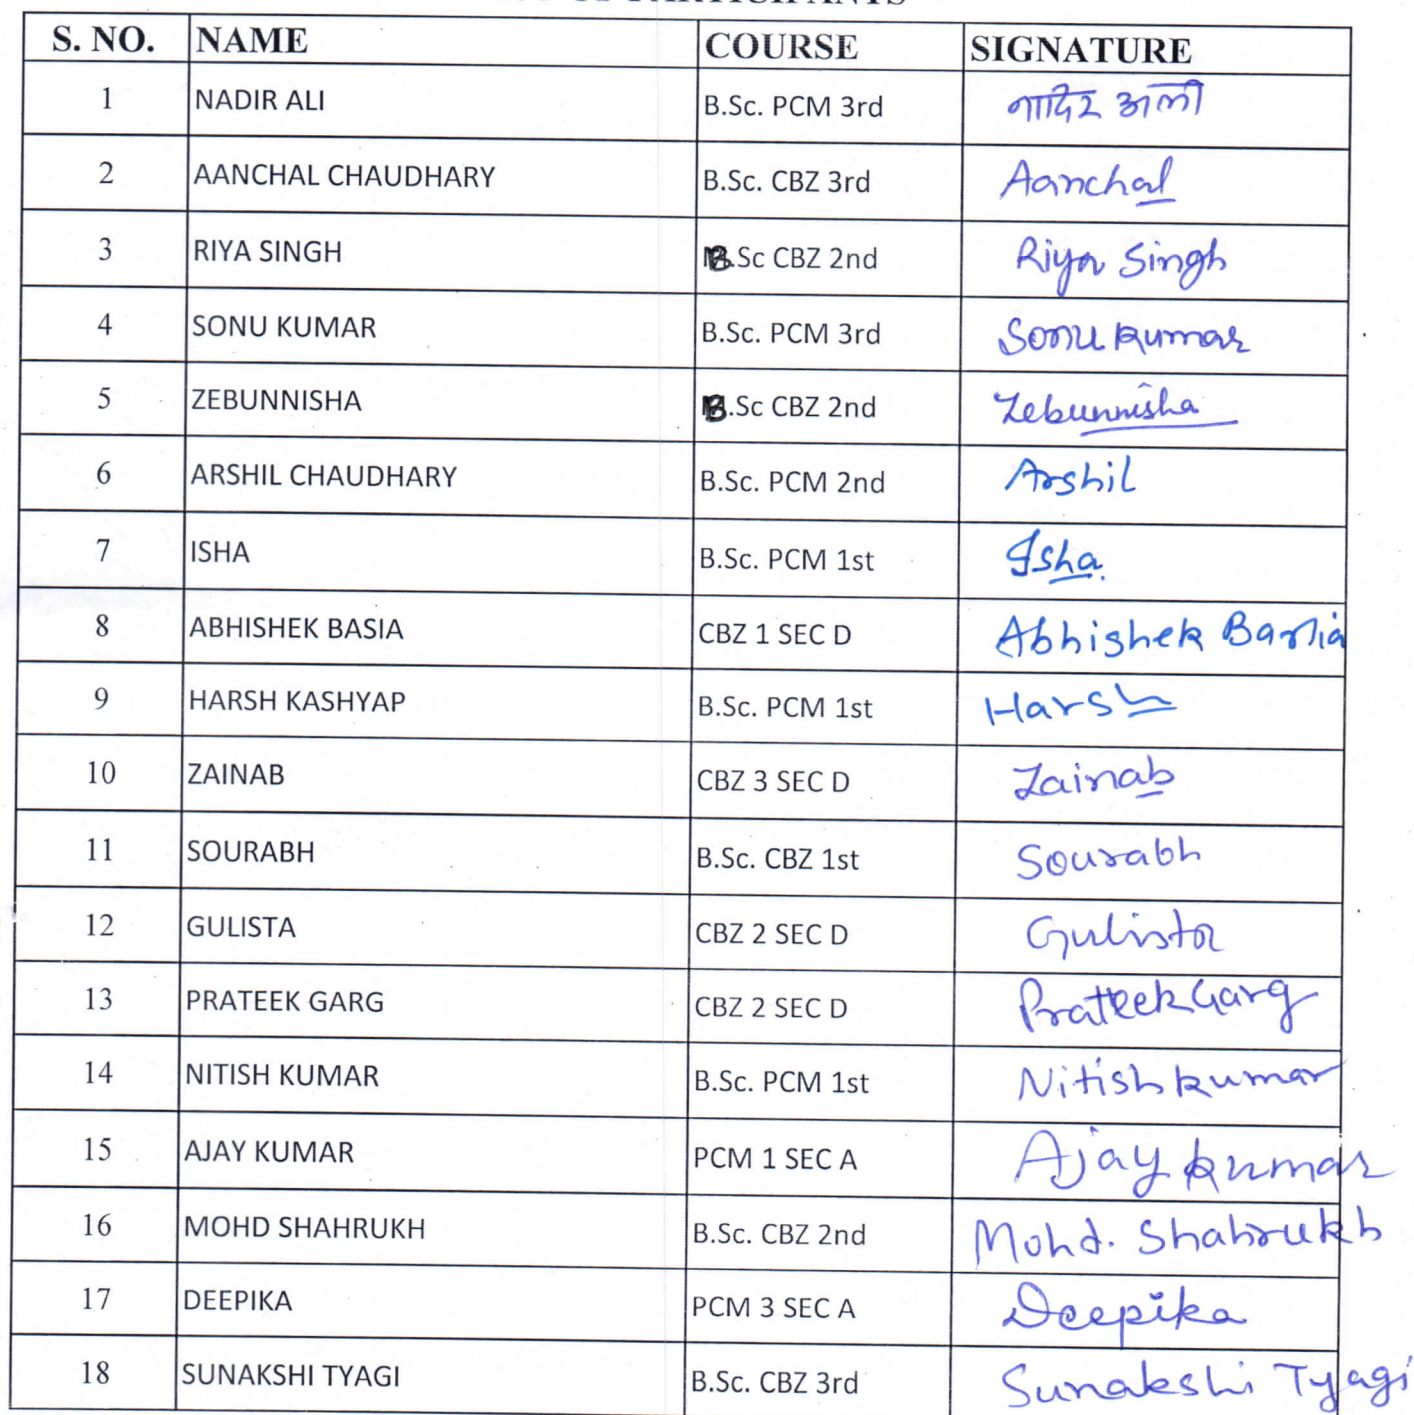 S. NO. NAME COURSE SIGNATURE
1 NADIR ALI B.Sc. PCM 3rd नादिर अली
2 AANCHAL CHAUDHARY B.Sc. CBZ 3rd Aanchal
3 RIYA SINGH B.Sc CBZ 2nd Riya Singh
4 SONU KUMAR B.Sc. PCM 3rd Sonu Kumar
5 ZEBUNNISHA B.Sc CBZ 2nd Zebunnisha
6 ARSHIL CHAUDHARY B.Sc. PCM 2nd Arshil
7 ISHA B.Sc. PCM 1st Isha.
8 ABHISHEK BASIA CBZ 1 SEC D Abhishek
9 HARSH KASHYAP B.Sc. PCM 1st Harsh
10 ZAINAB CBZ 3 SEC D Zainab
11 SOURABH B.Sc. CBZ 1st Sourabh
12 GULISTA CBZ 2 SEC D Gulista
13 PRATEEK GARG CBZ 2 SEC D Prateek Garg
14 NITISH KUMAR B.Sc. PCM 1st Nitish Kumar
15 AJAY KUMAR PCM 1 SEC A Ajay Kumar
16 MOHD SHAHRUKH B.Sc. CBZ 2nd Mohd. Shahrukh
17 DEEPIKA PCM 3 SEC A Deepika
18 SUNAKSHI TYAGI B.Sc. CBZ 3rd Sunakshi Tyagi